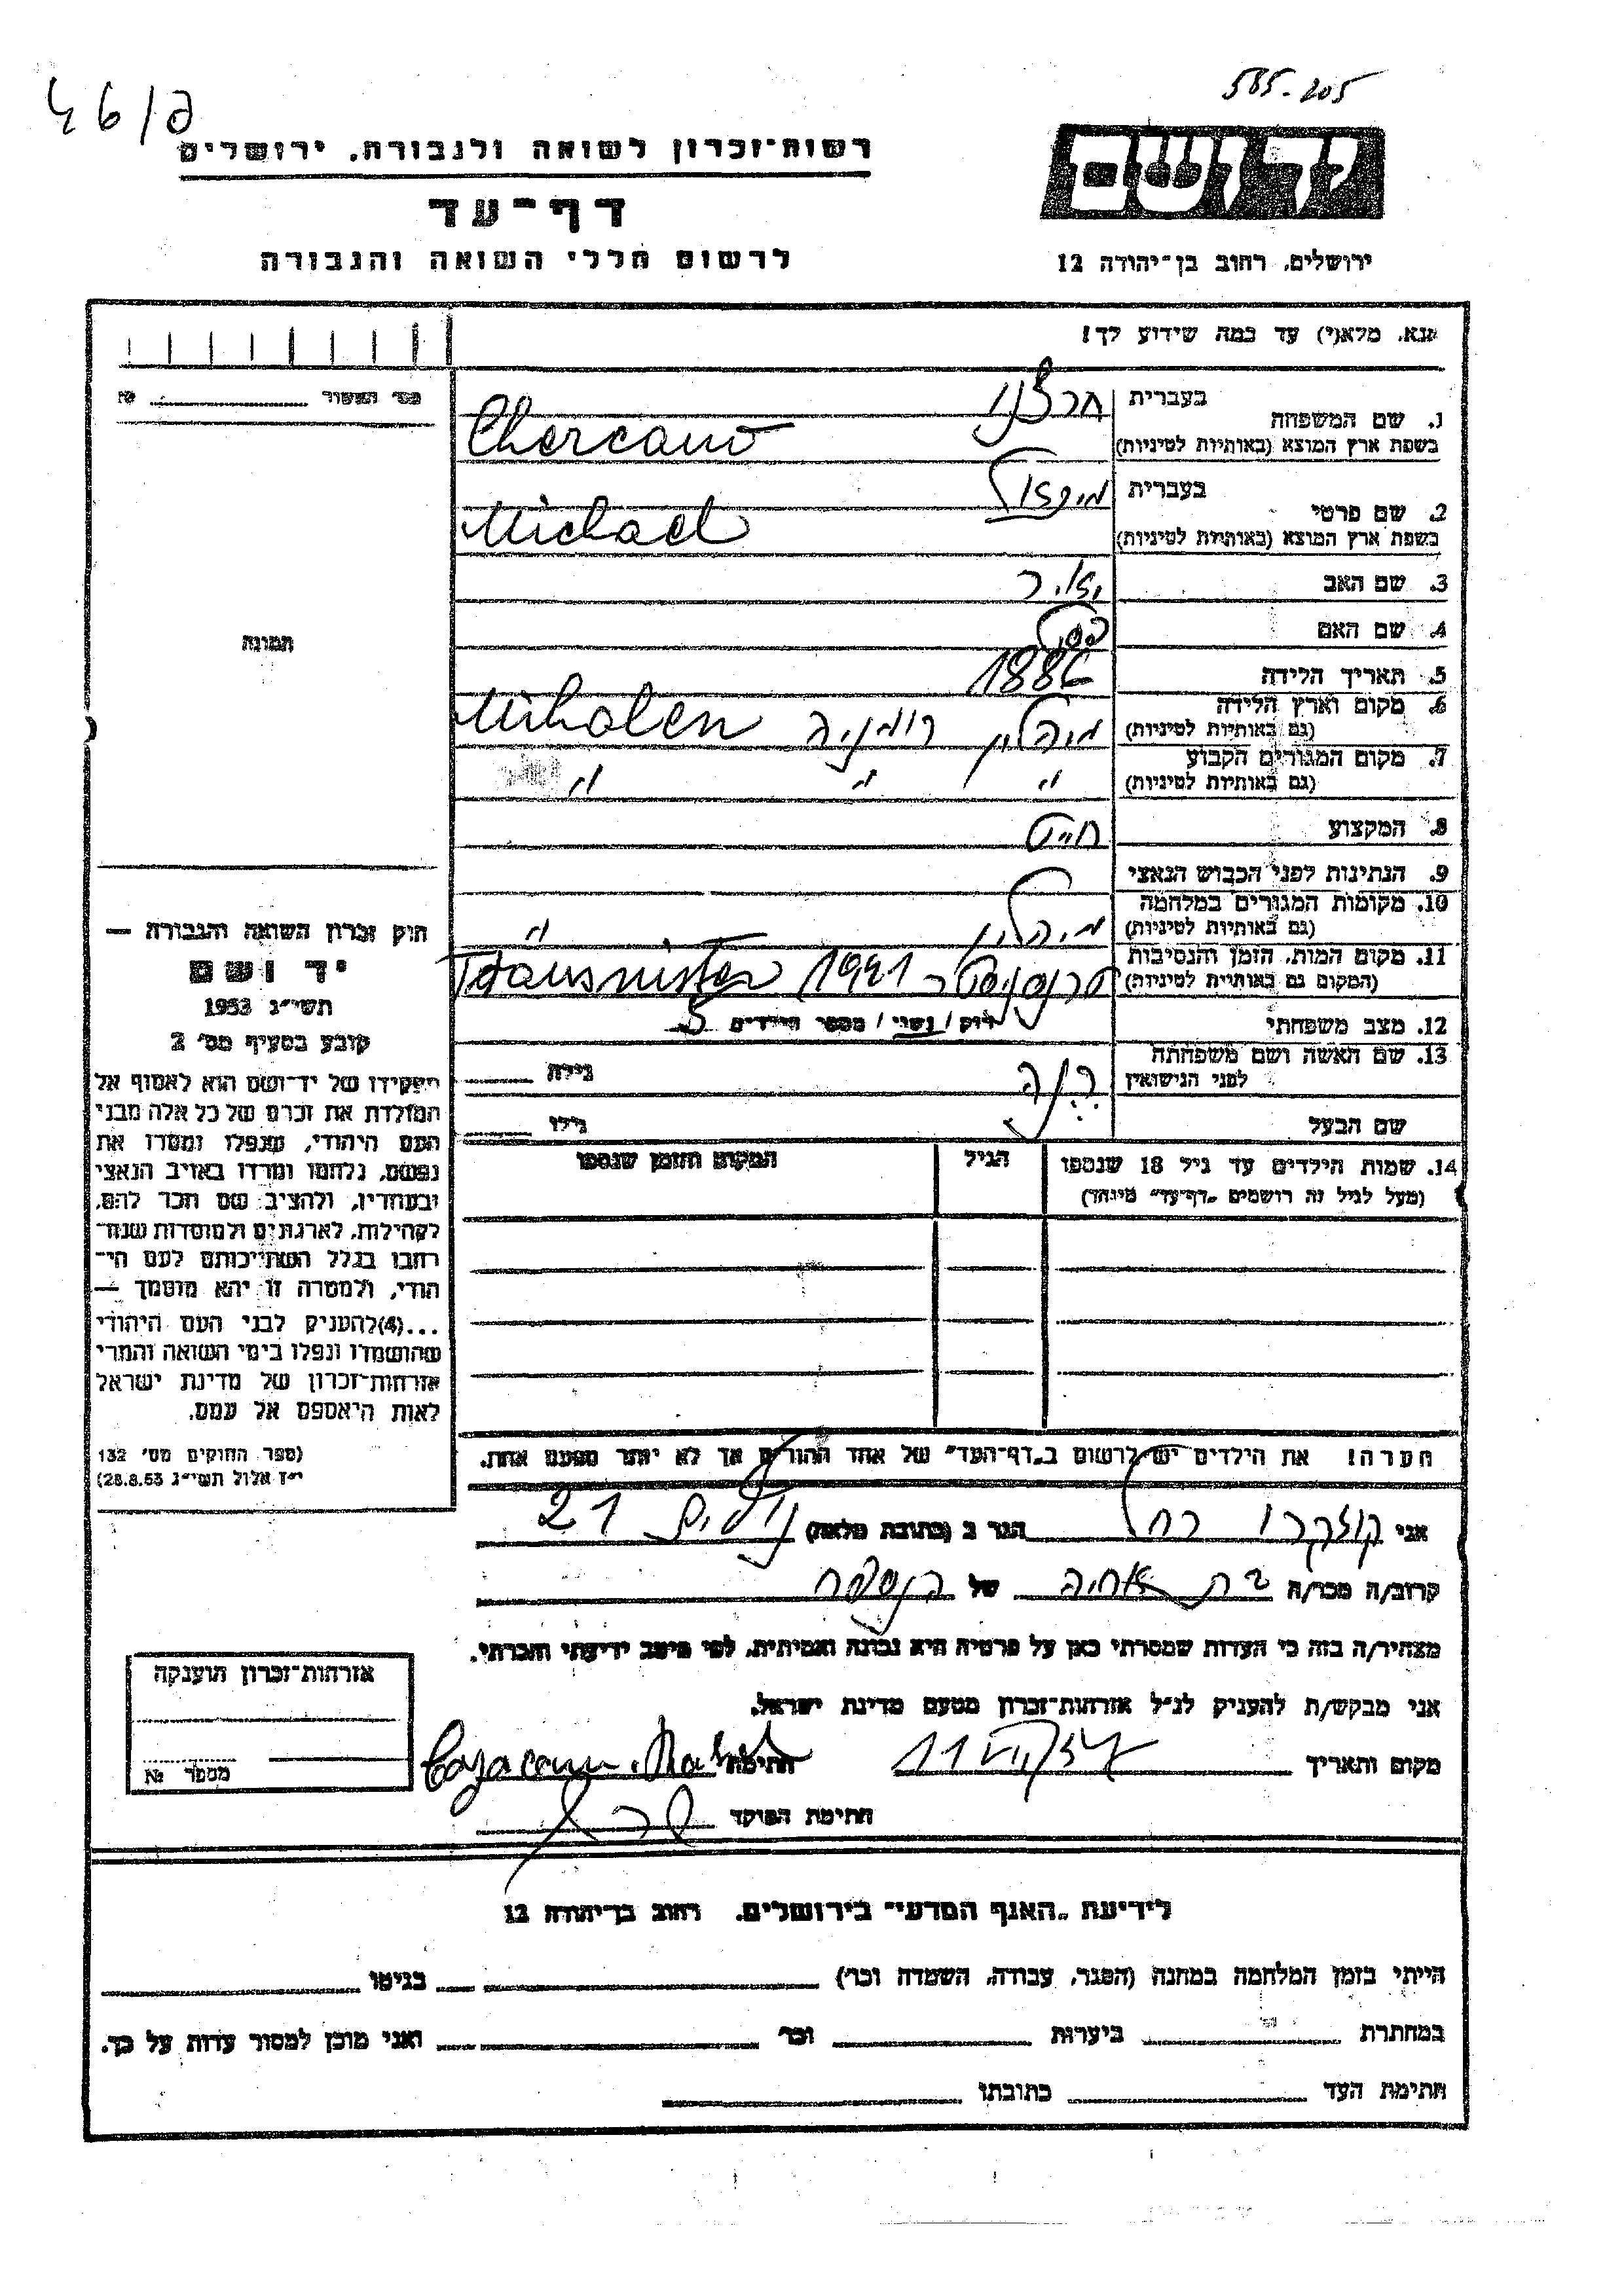 46/פ
565-205
רשות־זכרון לשואה ולגבורה, ירושלים
יד ושם
דף־עד
לרשום חללי השואה והגבורה
ירושלים, רחוב בן־יהודה 12
נא, מלא(י) עד כמה שידוע לך!
מס׳ האשור № 
1. שם המשפחה
בעברית
בשפת ארץ המוצא (באותיות לטיניות)
Chercanu
2. שם פרטי
בעברית מיכאל
בשפת ארץ המוצא (באותיות לטיניות)
Michael
3. שם האב מאיר
4. שם האם
5. תאריך הלידה 1886
6. מקום וארץ הלידה
(גם באותיות לטיניות) מיהלין רומניה Mihalen
7. מקום המגורים הקבוע
(גם באותיות לטיניות) " " "
8. המקצוע חייט
9. הנתינות לפני הכבוש הנאצי
10. מקומות המגורים במלחמה
(גם באותיות לטיניות) מיהלין "
11. מקום המות, הזמן והנסיבות
(המקום גם באותיות לטיניות) 1941
12. מצב משפחתי רוק/נשוי/מספר הילדים 5
13. שם האשה ושם משפחתה
לפני הנישואין
גילה
שם הבעל גילו
14. שמות הילדים עד גיל 18 שנספו
(מעל לגיל זה רושמים „דף־עד” מיוחד)
הגיל
המקום והזמן שנספו
הערה! את הילדים יש לרשום ב„דף־העד” של אחד ההורים אך לא יותר מפעם אחת.
תמונה
חוק זכרון השואה והגבורה —
יד ושם
תשי״ג 1953
קובע בסעיף מס׳ 2
תפקידו של יד־ושם הוא לאסוף אל
המולדת את זכרם של כל אלה מבני
העם היהודי, שנפלו ומסרו את
נפשם, נלחמו ומרדו באויב הנאצי
ובעוזריו, ולהציב שם וזכר להם,
לקהילות, לארגונים ולמוסדות שנח־
רבו בגלל השתייכותם לעם הי־
הודי, ולמטרה זו יהא מוסמך —
...(4)להעניק לבני העם היהודי
שהושמדו ונפלו בימי השואה והמרי
אזרחות־זכרון של מדינת ישראל
לאות היאספם אל עמם.
(ספר החוקים מס׳ 132
י״ז אלול תשי״ג 28.8.53)
אני רחל הגר ב (כתובת מלאה) 21
קרוב/ה מכר/ה בת אחיה של הנספה
מצהיר/ה בזה כי העדות שמסרתי כאן על פרטיה היא נכונה ואמיתית, לפי מיטב ידיעתי והכרתי.
אני מבקש/ת להעניק לנ״ל אזרחות־זכרון מטעם מדינת ישראל.
מקום ותאריך
חתימה
חתימת הפוקד
אזרחות־זכרון הוענקה
מספר №
לידיעת „האגף המדעי” בירושלים, רחוב בן־יהודה 12
הייתי בזמן המלחמה במחנה (הסגר, עבודה, השמדה וכו׳) בגיטו
במחתרת ביערות וכו׳ ואני מוכן למסור עדות על כך.
חתימת העד כתובתו